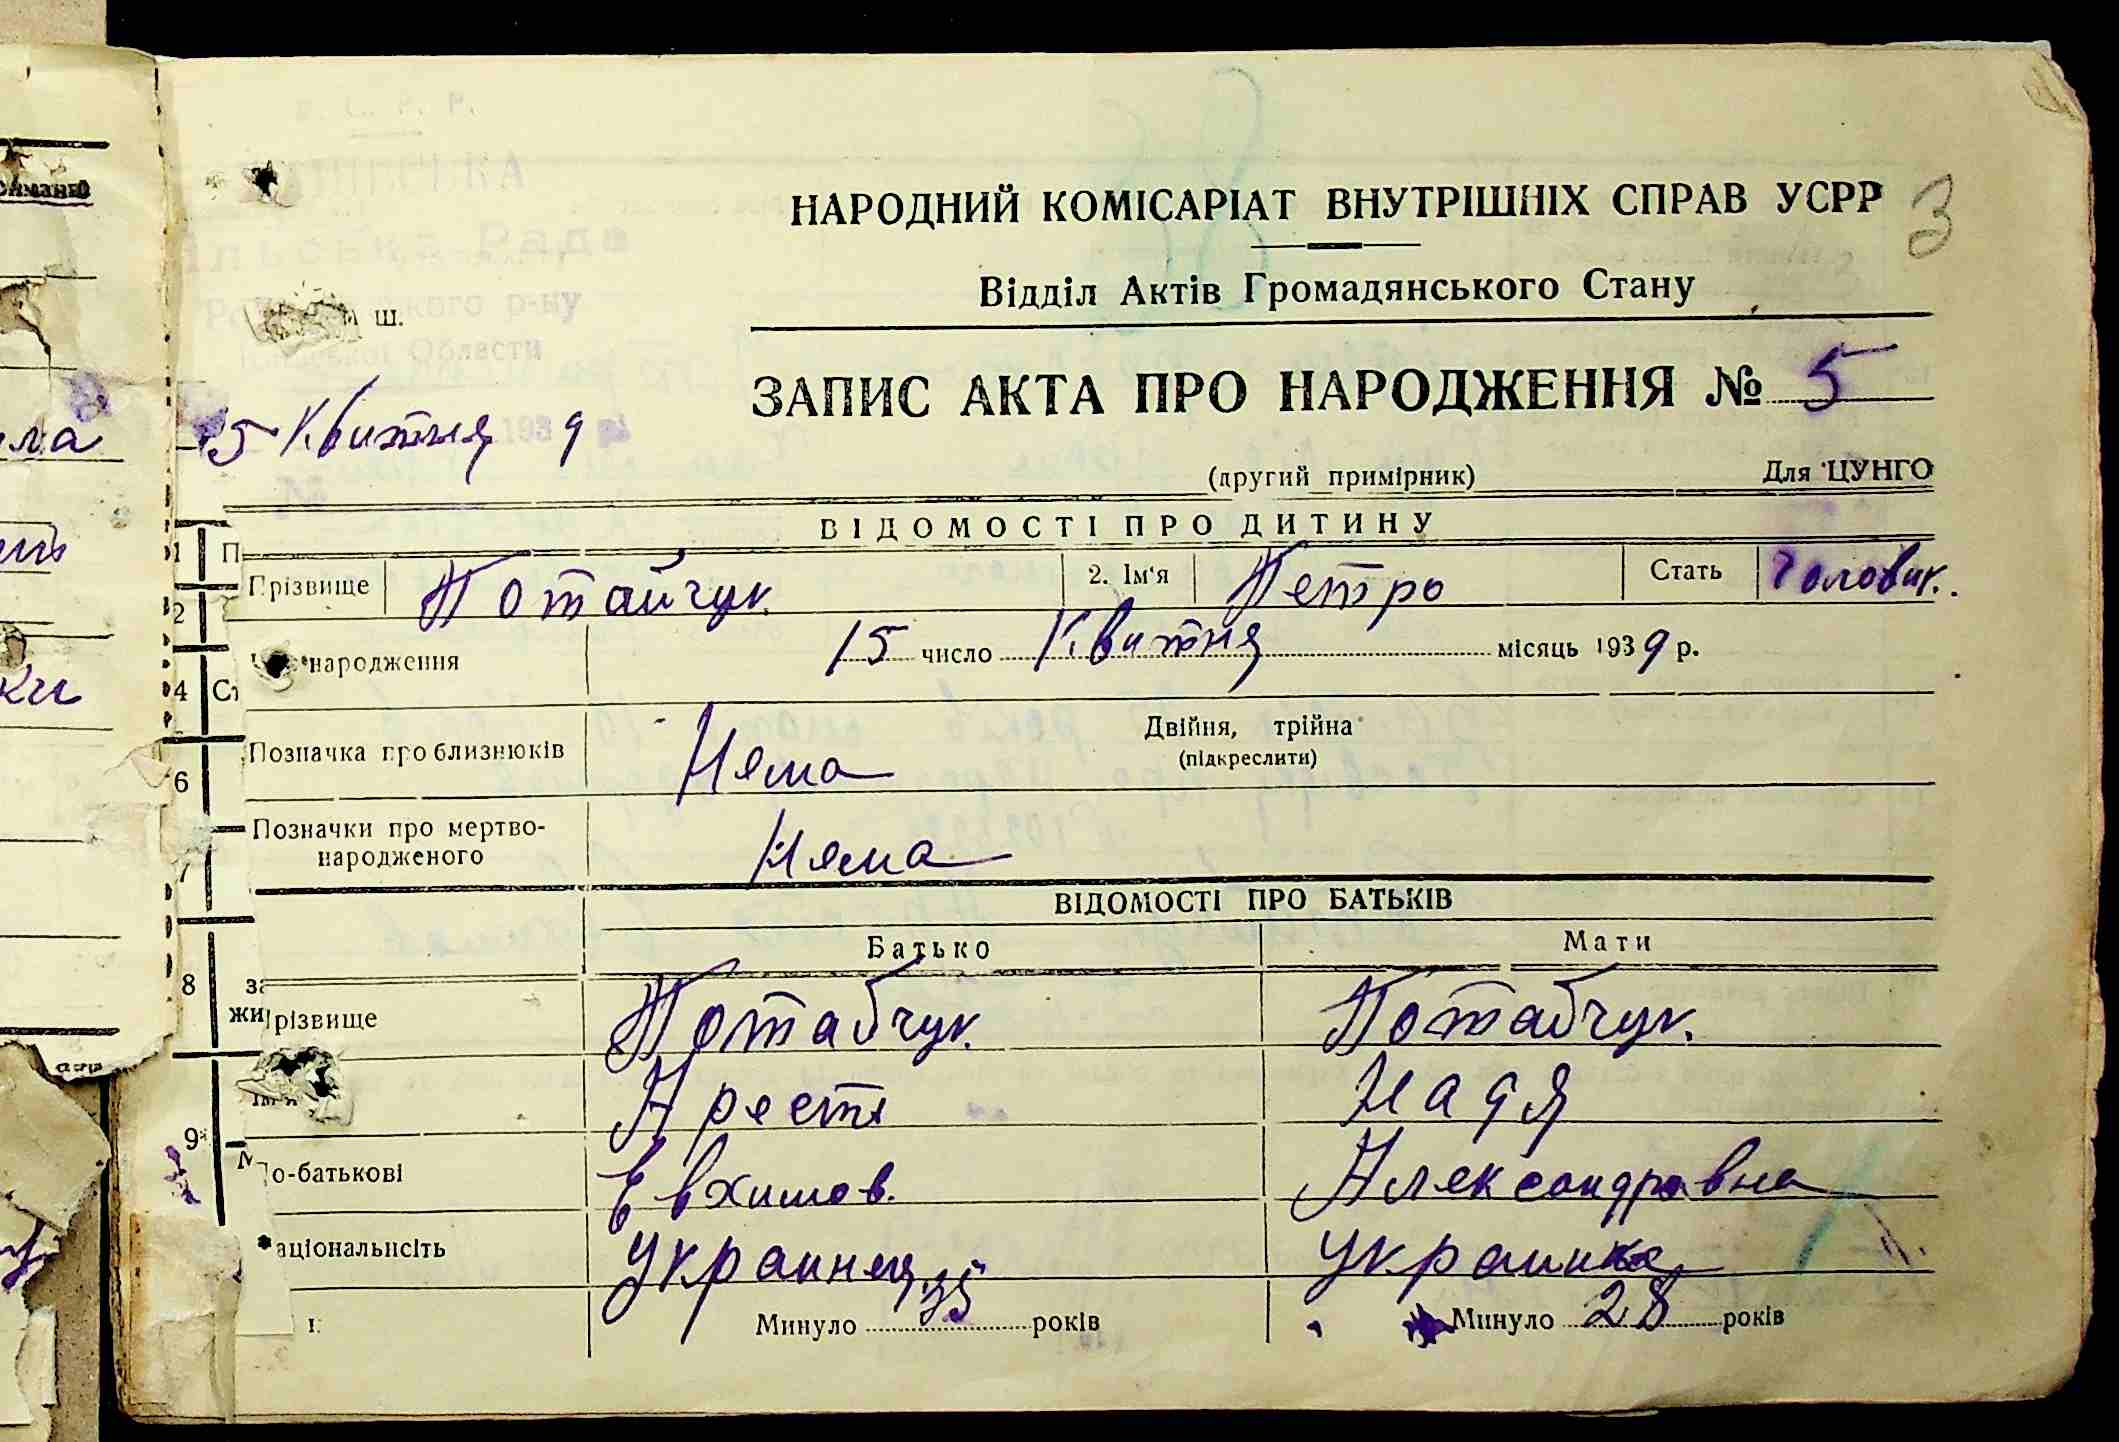 НАРОДНИЙ КОМІСАРІАТ ВНУТРІШНІХ СПРАВ УСРР
3
Відділ Актів Громадянського Стану
ЗАПИС АКТА ПРО НАРОДЖЕННЯ № 5
ільська Рада
р-ну
Области
193
ш.
15 Квитня 9
(другий примірник)
Для ЦУНГО
ВІДОМОСТІ ПРО ДИТИНУ
Прізвище Потайчук 2. Ім'я Петро Стать Головик.
народження 15 число Квитня місяць 1939 р.
Позначка про близнюків Няма Двійня, трійна
(підкреслити)
Позначки про мертво-
народженого Няма
ВІДОМОСТІ ПРО БАТЬКІВ
Батько Мати
різвище Потабчук. Потабчук.
Арест Надя
о-батькові Евхимов. Александравна
аціональність украинец украинка
Минуло 35 років Минуло 28 років
1
2
4
6
7
8
9